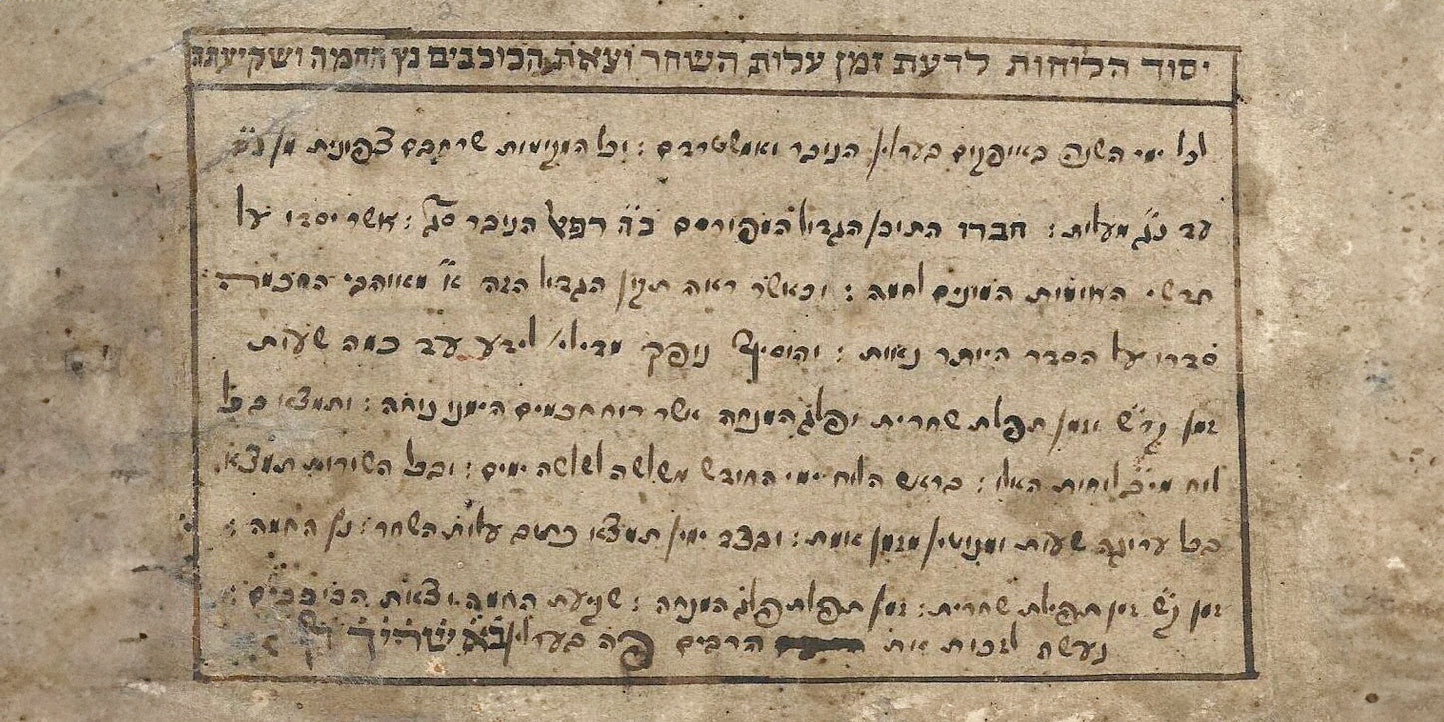 יסוד הלוחות לדעת זמן עלות השחר וצאת הכוכבים נץ החמה ושקיעתה
לכל ימי השנה באופנים בערלין הנוכר ואמשטרדם : וכל המקומות שרחבם צפונית מן נ״ב
עד נ״ג מעלות : חברו התוכן הגדול המפורסם כ״ה רפאל הנוכר סג״ל : אשר יסדו על
חדשי החומות המונים לחמה : וכאשר ראה תקון הגדול הזה א׳ מאוהבי החכמה
סדרו על הסדר היותר נאות : והוסיף נופך מדילי׳ לידע עד כמה שעות
זמן ק״ש וזמן תפלת שחרית ופלג המנחה אשר רוח חכמים הימנו נוחה : ותמצא בכל
לוח מי״ב לוחות האלו : בראש הלוח ימי החודש משלשה לשלשה ימים : ובכל השורות תמצא
בכל ערוגה שעות ומנוטין מזמן אותו : ובצד ימין תמצא כתוב עלות השחר : נץ החמה :
זמן ק״ש זמן תפילת שחרית : זמן תפלת פלג המנחה : שקיעת החמה וצאת הכוכבים :
נעשה לזכות את הרבים פה בערלין